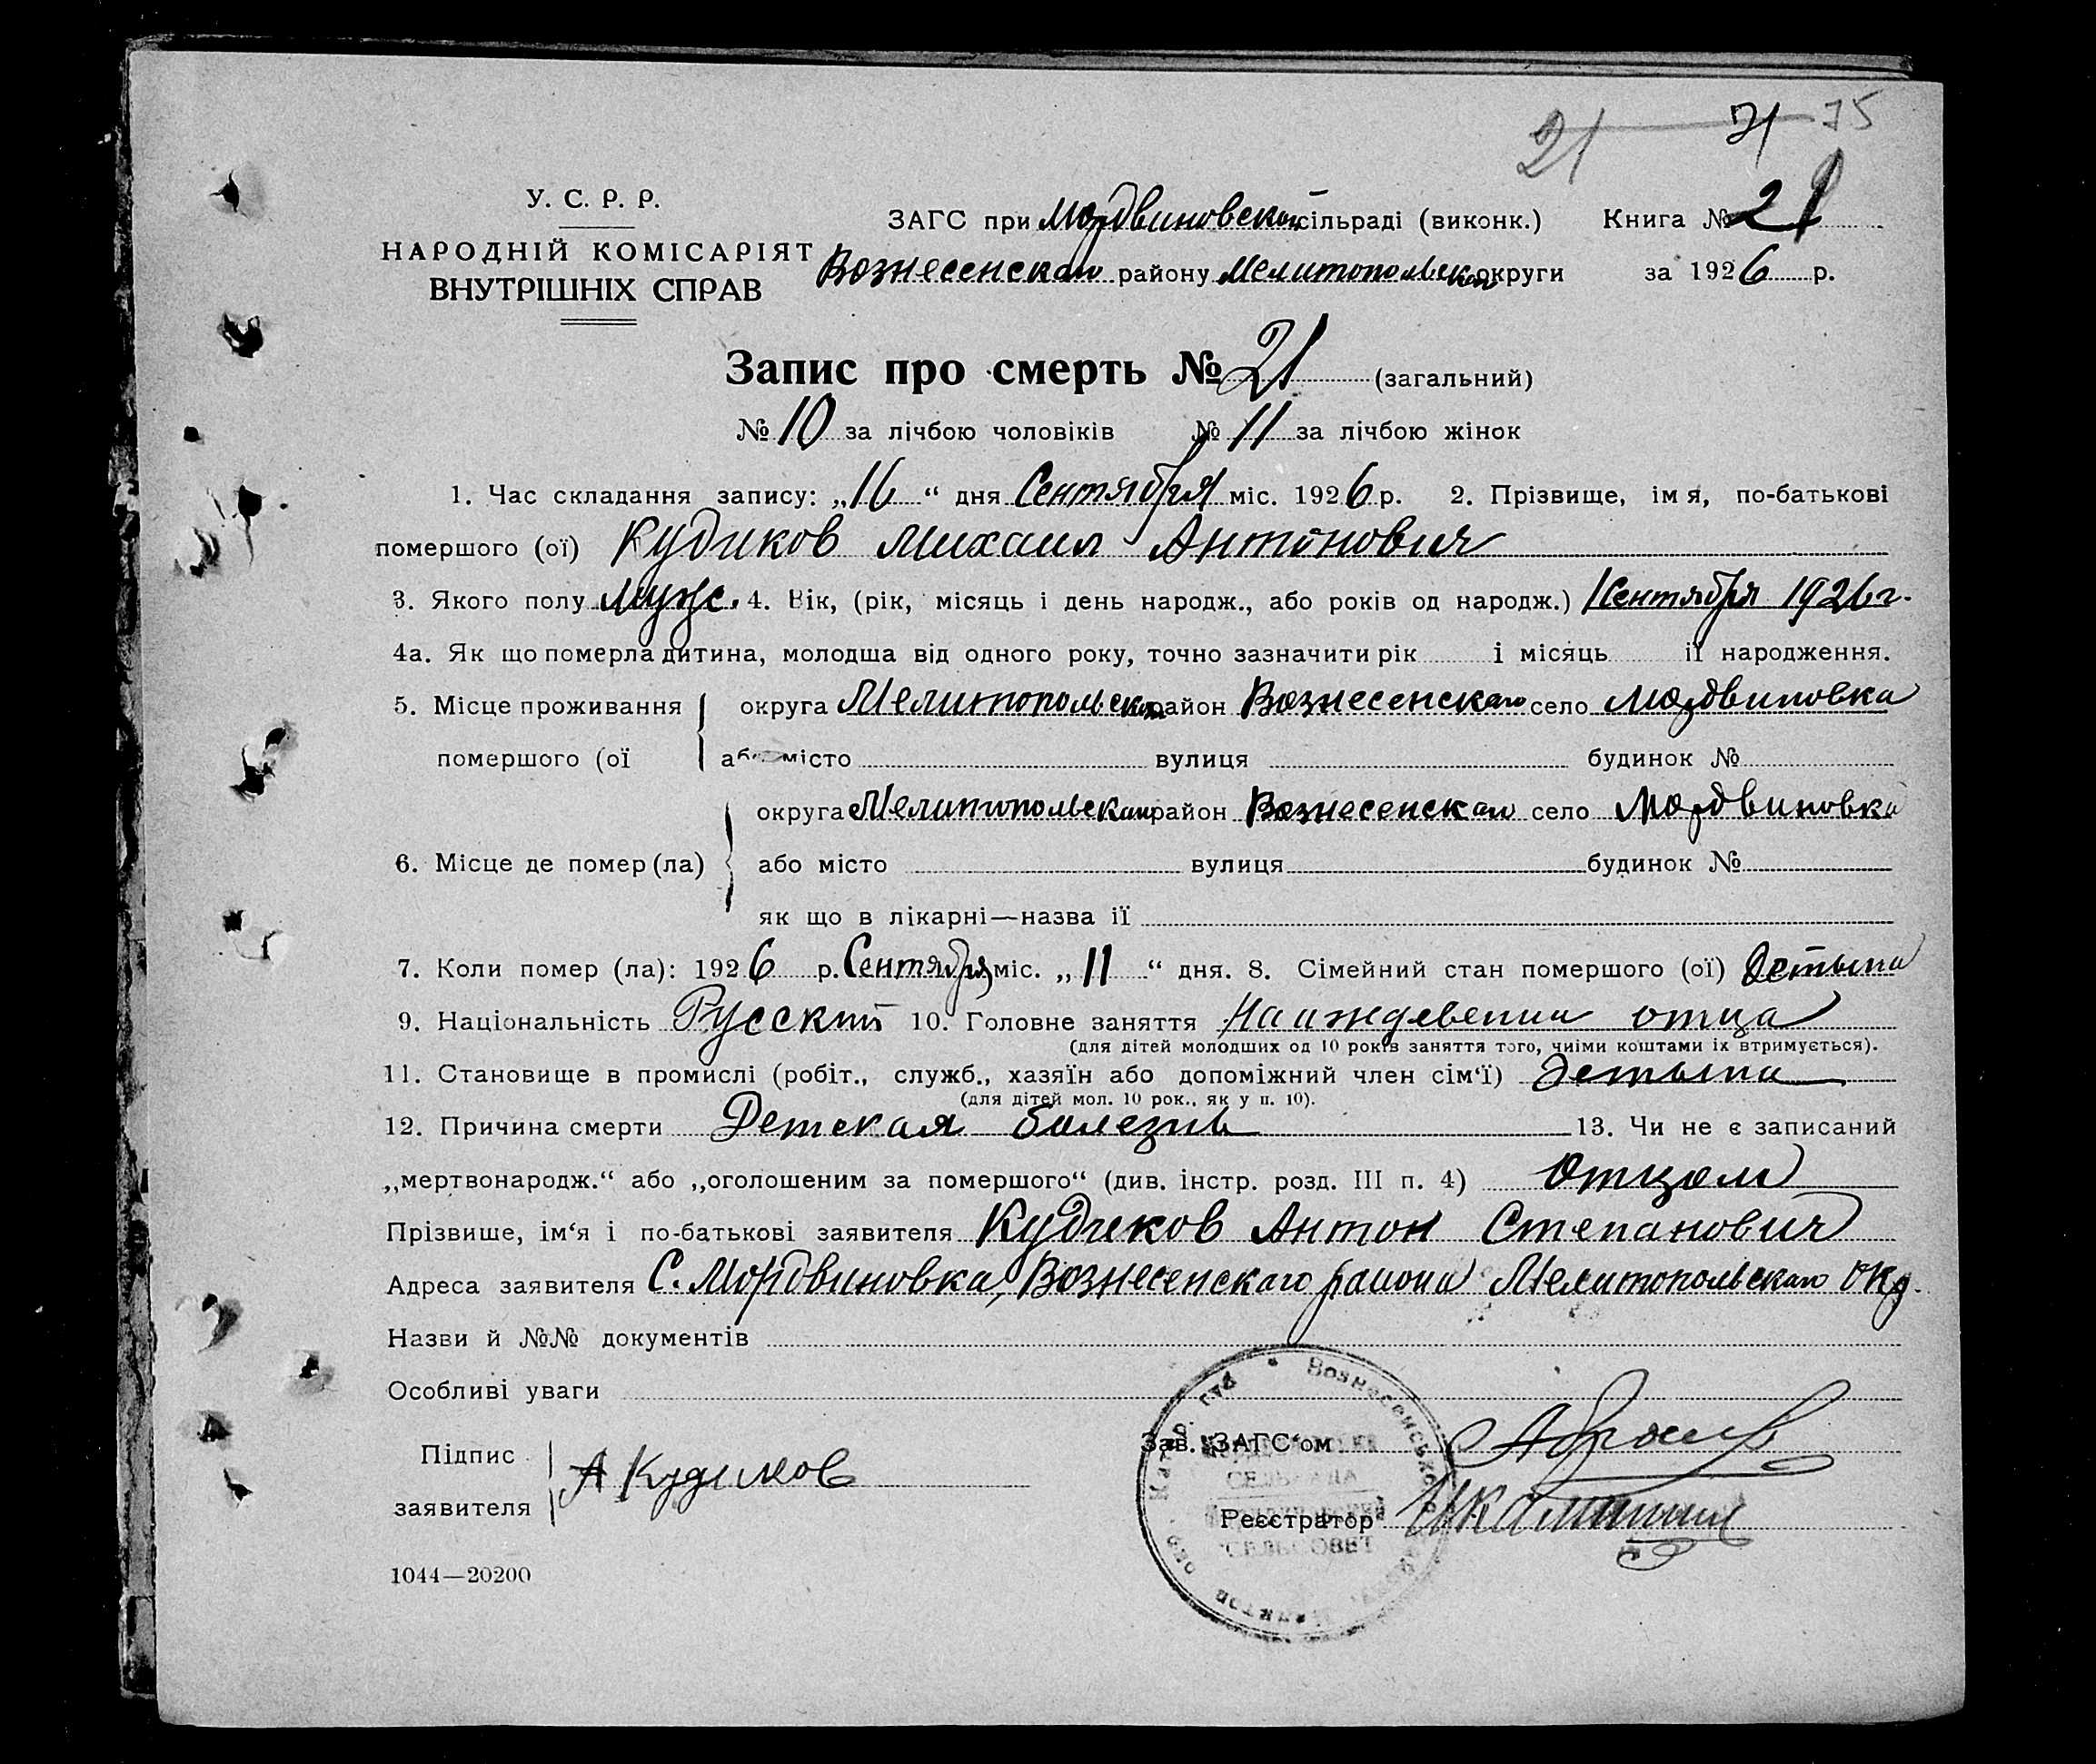 21 71 75
У. С. Р. Р.
НАРОДНІЙ КОМІСАРІЯТ
ВНУТРІШНІХ СПРАВ
ЗАГС при Мордвиновской сільраді (виконк.) Книга № 21
Вознесенскаго району Мелитопольской округи за 1926 р.
Запис про смерть № 21 (загальний)
№ 10 за лічбою чоловіків № 11 за лічбою жінок
1. Час складання запису: „16“ дня Сентября міс. 1926 р. 2. Прізвище, імя, по-батькові
помершого (ої) Кудиков Михаил Антонович
3. Якого полу Муж. 4. Вік, (рік, місяць і день народж., або років од народж.) 1 Сентября 1926 г.
4а. Як що померла дитина, молодша від одного року, точно зазначити рік і місяць її народження.
5. Місце проживання округа Мелитопольской район Вознесенскаго село Мордвиновка
помершого (ої або місто вулиця будинок №
округа Мелитопольская район Вознесенскаго село Мордвиновка
6. Місце де помер (ла) або місто вулиця будинок №
як що в лікарні—назва її
7. Коли помер (ла): 1926 р. Сентября міс. „11“ дня. 8. Сімейний стан помершого (ої)
9. Національність Русский 10. Головне заняття На иждевении отца
(для дітей молодших од 10 років заняття того, чиїми коштами їх втримується).
11. Становище в промислі (робіт., служб., хазяїн або допоміжний член сім‘ї)
(для дітей мол. 10 рок., як у п. 10).
12. Причина смерти Детская болезнь 13. Чи не є записаний
„мертвонародж.“ або „оголошеним за помершого“ (див. інстр. розд. III п. 4) Отцом
Прізвише, ім‘я і по-батькові заявителя Кудиков Антон Степанович
Адреса заявителя С. Мордвиновка, Вознесенскаго района Мелитопольскаго окр.
Назви й №№ документів
Особливі уваги
Підпис
заявителя А Кудиков
Зав. ЗАГС‘ом
Реєстратор
СЕЛЬРАДА
СЕЛЬСОВЕТ
1044—20200